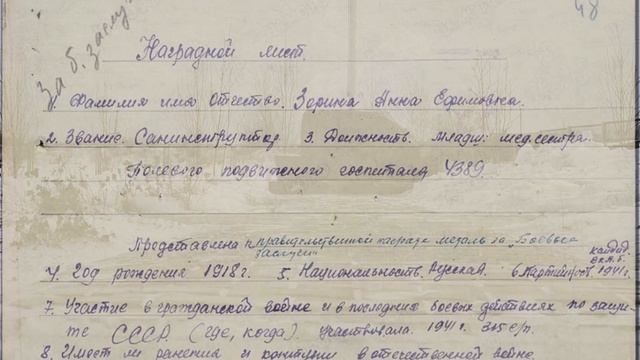 48
За б. заслу
Наградной лист.
1. Фамилия имя Отчество. Зорина Анна Ефимовна.
2. Звание. Санинструктор 3. Должность. младш. мед. сестра.
Полевого подвижного госпиталя 4389.
Представлена к правительственной награде медаль за „Боевые
заслуги"
4. Год рождения 1918 г. 5. Национальность. Русская. 6. Партийност. кандид. 1941 г.
7. Участие в гражданской войне и в последних боевых действиях по защи-
те СССР (где, когда) участвовала. 1941 г.
8. Имеет ли ранения и контузии в отечественной войне